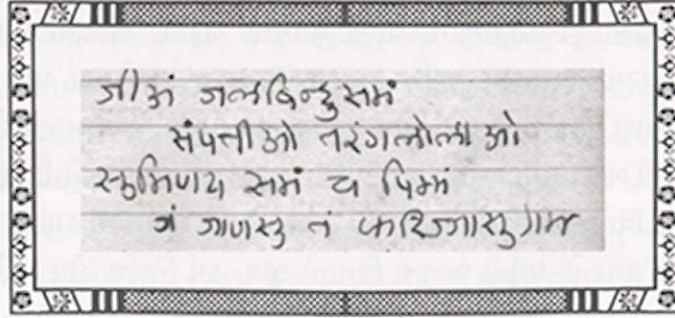 जीअं जलबिन्दुसमं
संपत्तीओ तरंगलोलाओ
सुमिणय समं च पिमं
जं जाणसु तं करिज्जासु